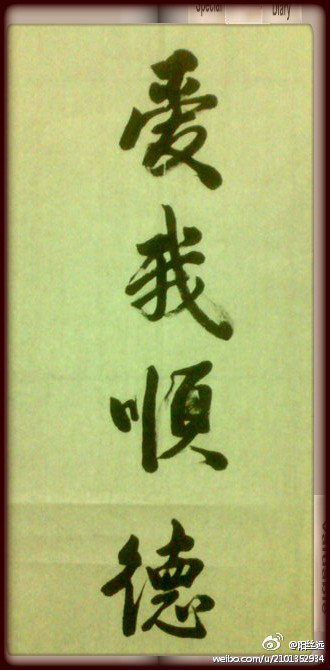 Special
Diary
愛我順德
@阳丝远
weibo.com/u/2101352934